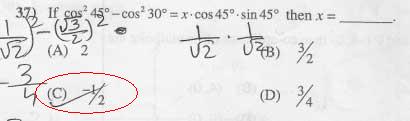 37) If cos² 45° – cos² 30° = x · cos 45° · sin 45° then x = ________.
(1/√2)² – (√3/2)² = 1/√2 · 1/√2
(A) 2 (B) 3/2
– 3/4
(C) –1/2 (D) 3/4